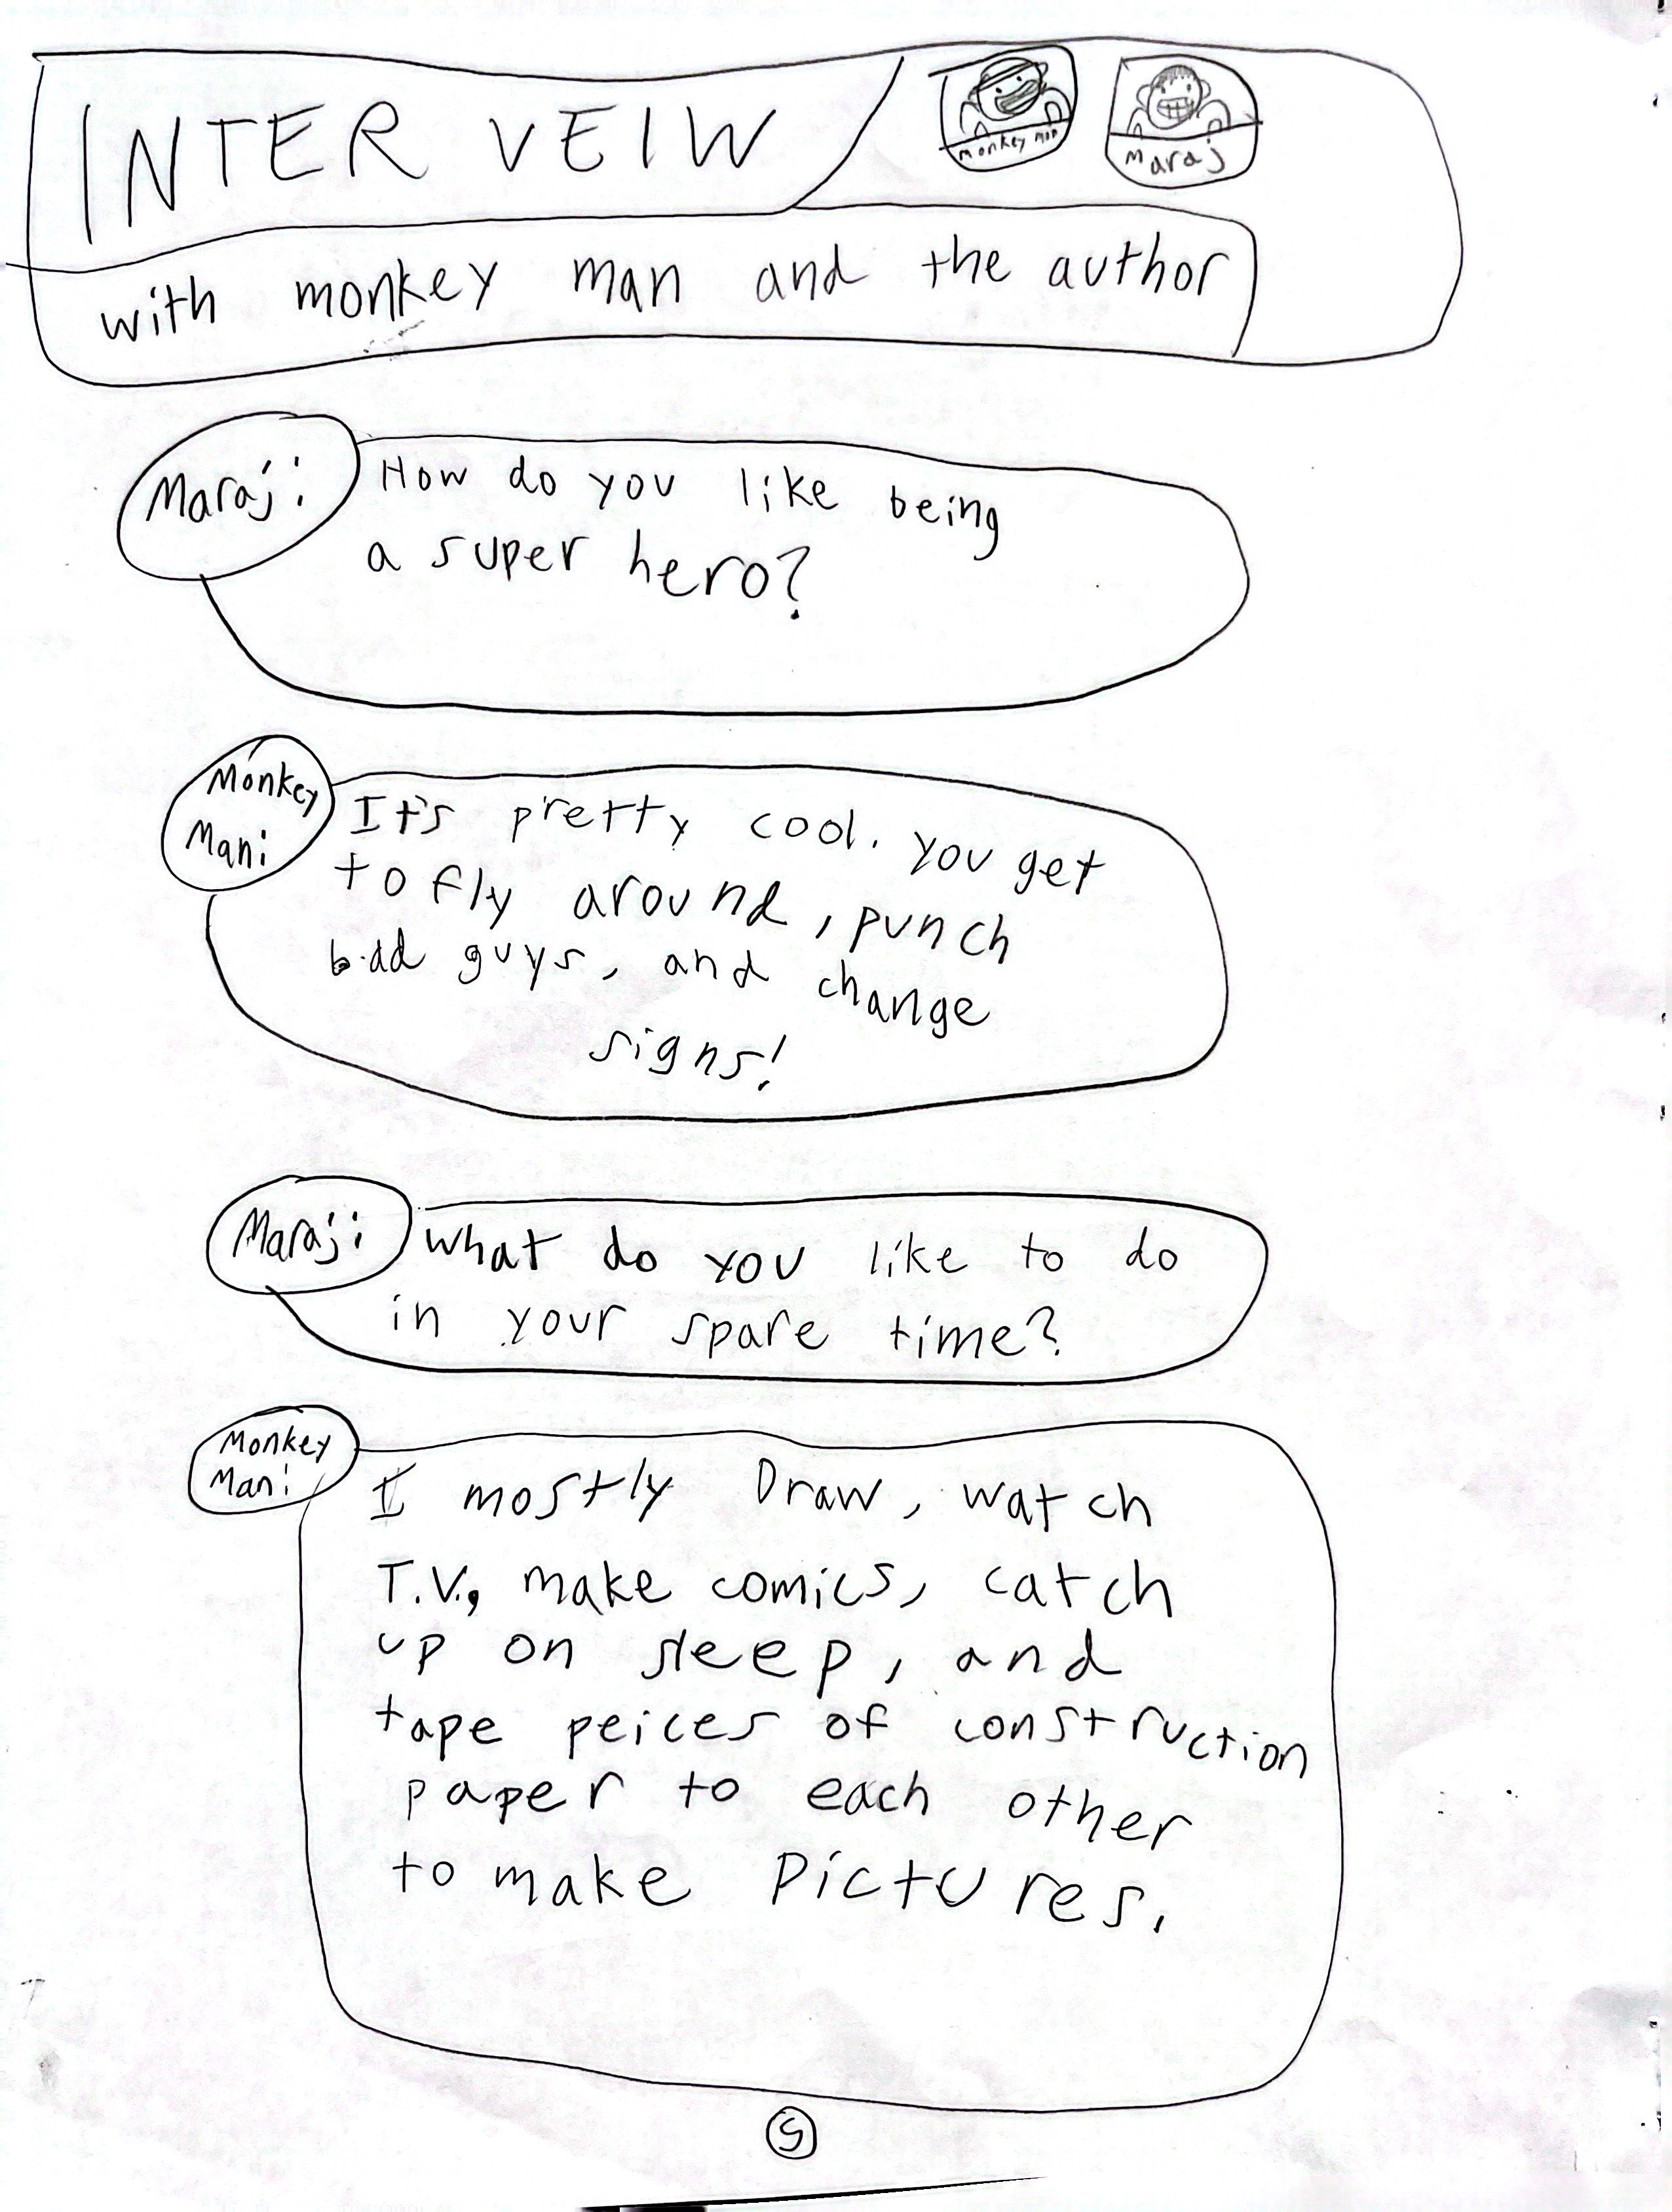 INTER VEIW
monkey man
Maraj
with monkey man and the author
Maraj: How do you like being
a super hero?
Monkey
Man: It's pretty cool. You get
to fly around, punch
bad guys, and change
signs!
Maraj: What do you like to do
in your spare time?
Monkey
Man: I mostly Draw, watch
T.V., make comics, catch
up on sleep, and
tape peices of construction
paper to each other
to make Pictures.
5